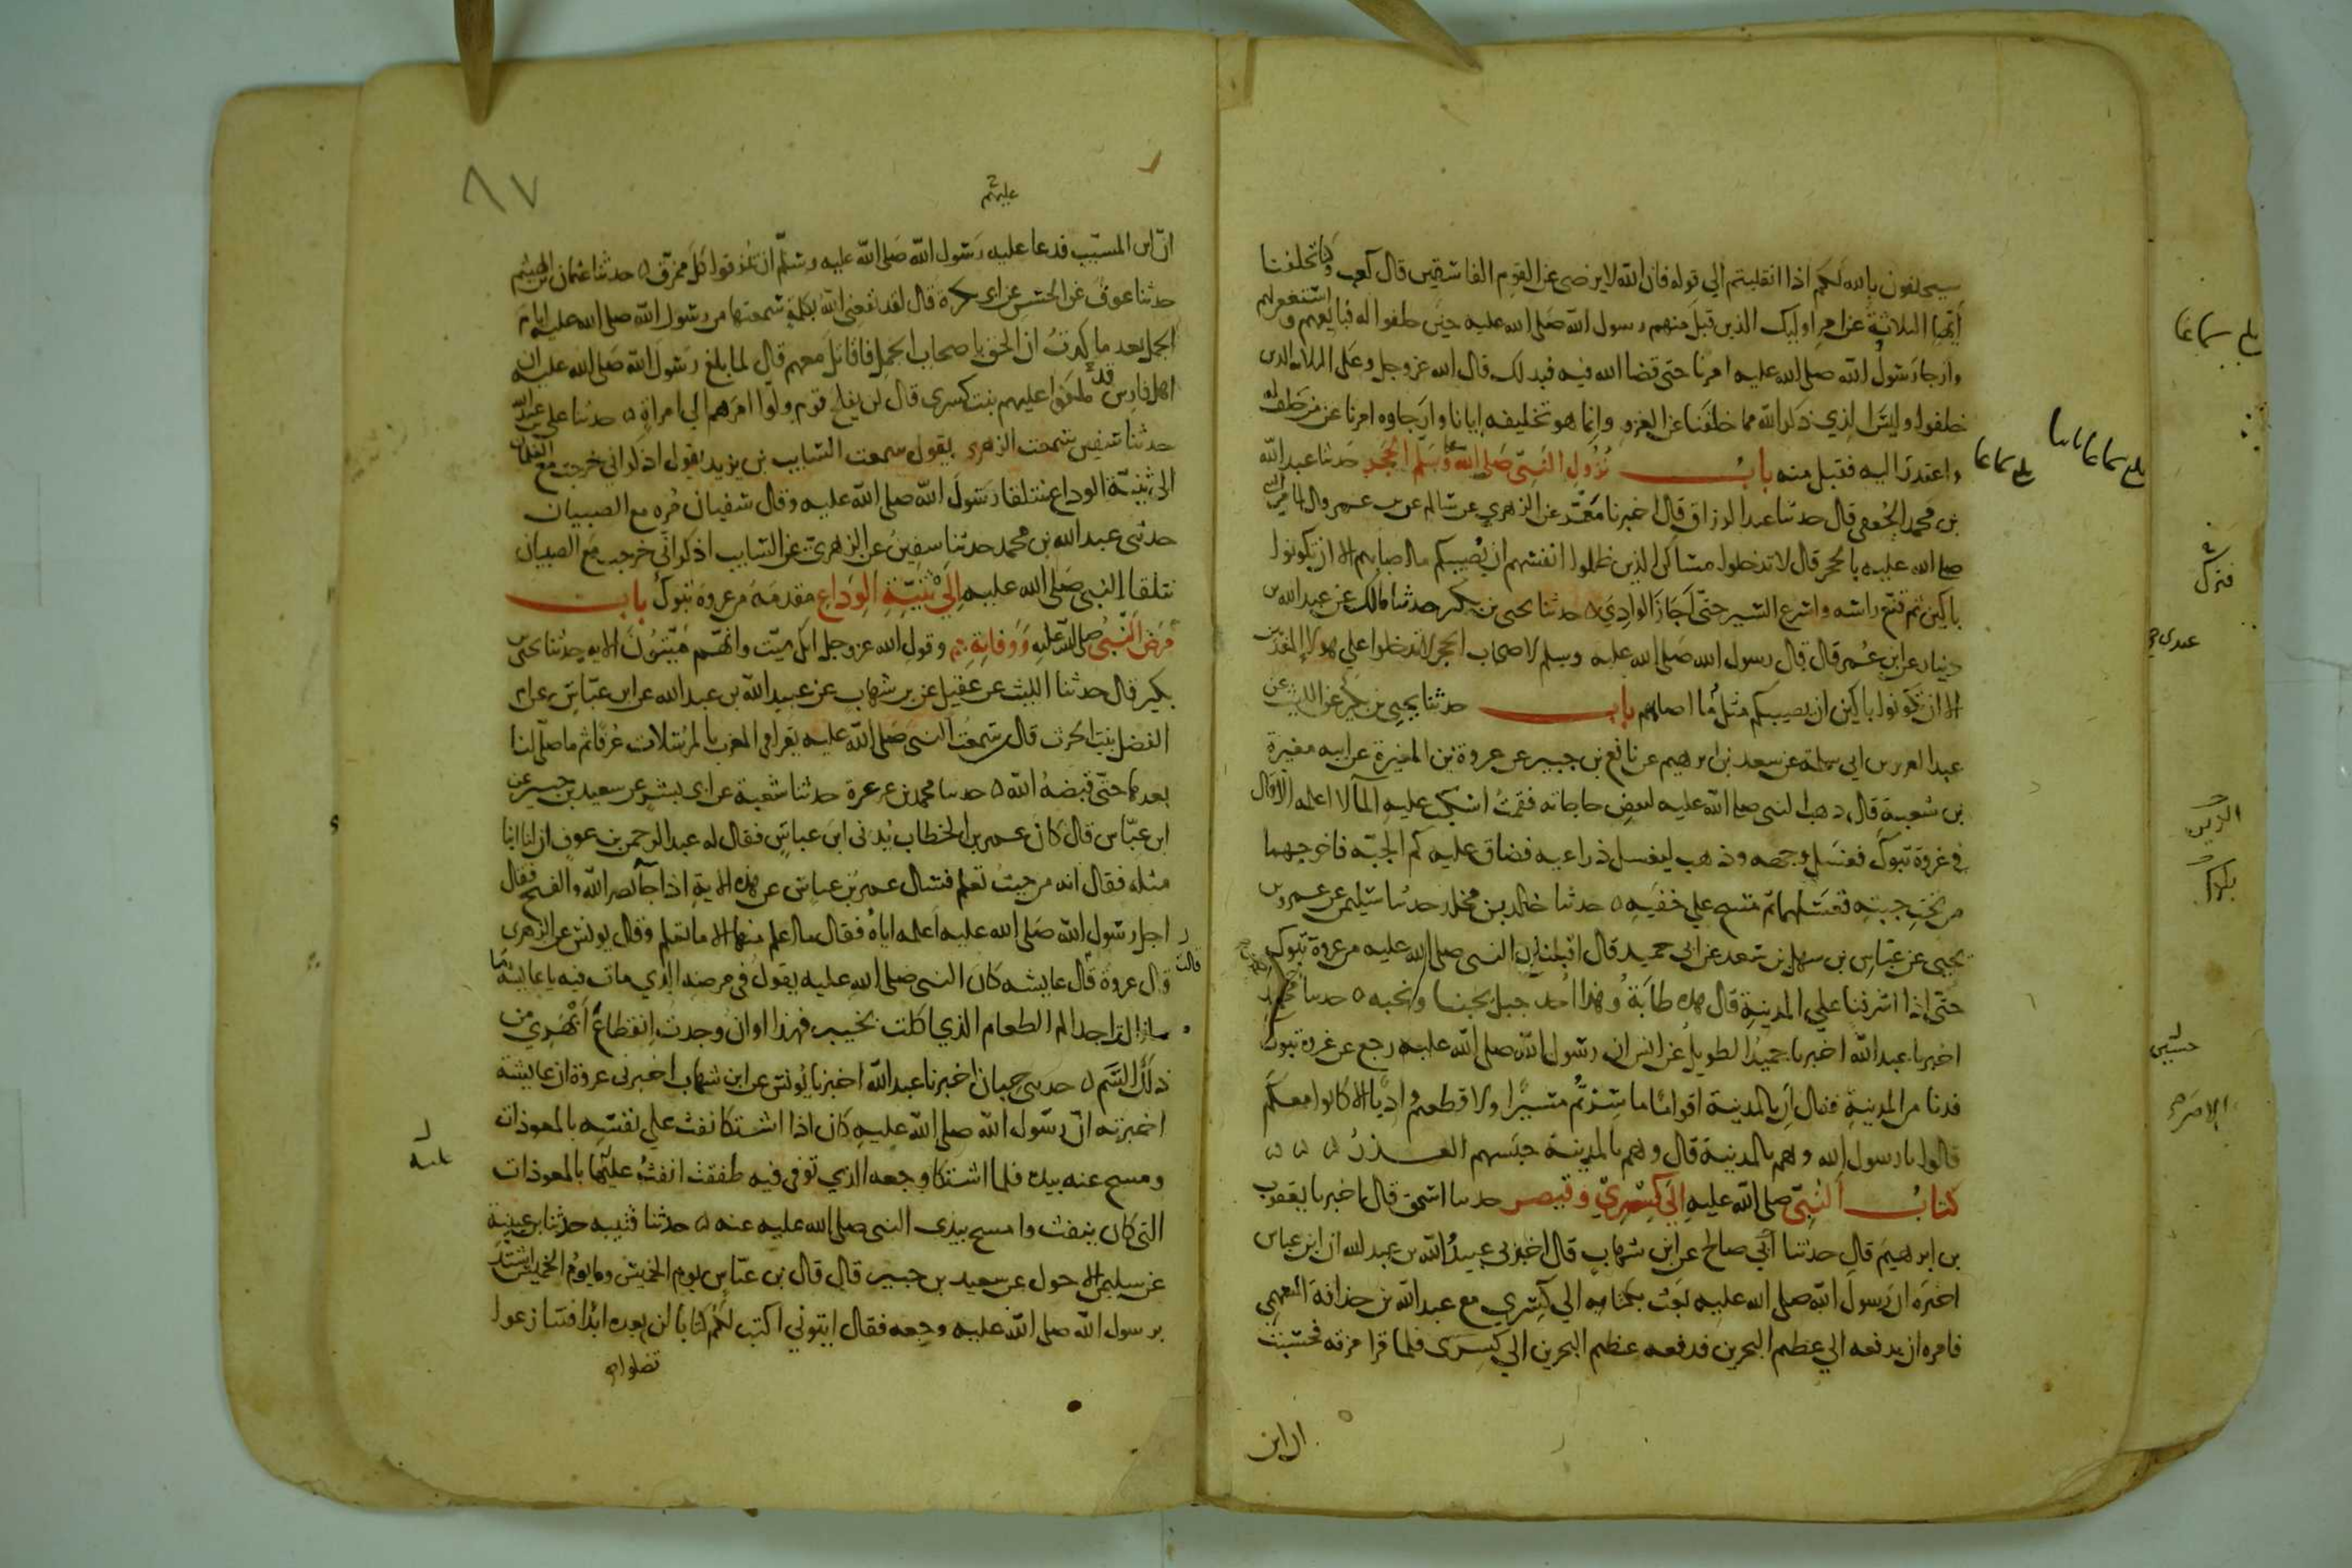 سيحلفون بالله لكم اذا انقلبتم الي قوله فان الله لايرضى عن القوم الفاسقين قال كعب وكنا تخلفنا
ايها الثلاثة عن امر اوليك الذين قبل منهم رسول الله صلى الله عليه حين حلفوا له فبايعهم واستغفر لهم
وارجا رسول الله صلى الله عليه امرنا حتى قضا الله فيه فبذلك قال الله عز وجل وعلى الثلاثة الذين
خلفوا وليس الذي ذكر الله مما خلفنا عن الغزو وانما هو تخليفه ايانا وارجاوه امرنا عن من حلف له
واعتذر اليه فقبل منه باب نزول النبي صلى الله عليه وسلم الحجر حدثنا عبد الله
بن محمد الجعفي قال حدثنا عبد الرزاق قال اخبرنا معمر عن الزهري عن سالم عن بن عمر قال لما مر النبي
صلى الله عليه بالحجر قال لا تدخلوا مساكن الذين ظلموا انفسهم ان يصيبكم ما اصابهم الا ان تكونوا
باكين ثم قنع راسه واسرع السير حتى اجاز الوادي ۵ حدثنا يحيى بن بكير حدثنا مالك عن عبد الله بن
دينار عن ابن عمر قال قال رسول الله صلى الله عليه وسلم لاصحاب الحجر لا تدخلوا علي هولا المعذبين
الا ان تكونوا باكين ان يصيبكم مثل ما اصابهم باب حدثنا يحيى بن بكير عن الليث عن
عبد العزيز بن ابي سلمة عن سعد بن ابرهيم عن نافع بن جبير عن عروة بن المغيرة عن ابيه مغيرة
بن شعبة قال ذهب النبي صلى الله عليه لبعض حاجاته فقمت اسكب عليه الما لا اعلمه الا قال
في غزوة تبوك فغسل وجهه وذهب ليغسل ذراعيه فضاق عليه كم الجبة فاخرجهما
من تحت جبته فغسلهما ثم مسح علي خفيه ۵ حدثنا خالد بن مخلد حدثنا سليمن عن عمرو بن
يحيى عن عباس بن سهل بن سعد عن ابي حميد قال اقبلنا مع النبي صلى الله عليه من غزوة تبوك
حتى اذا اشرفنا علي المدينة قال هذه طابة وهذا احد جبل يحبنا ونحبه ۵ حدثنا احمد بن محمد
اخبرنا عبد الله اخبرنا حميد الطويل عن انس ان رسول الله صلى الله عليه رجع عن غزوة تبوك
فدنا من المدينة فقال ان بالمدينة اقواما ما سرتم مسيرا ولا قطعتم واديا الا كانوا معكم
قالوا يا رسول الله وهم بالمدينة قال وهم بالمدينة حبسهم العذر ۵ ۵ ۵
كتاب النبي صلى الله عليه الى كسرى وقيصر حدثنا اسحق قال اخبرنا يعقوب
بن ابرهيم قال حدثنا ابي صالح عن ابن شهاب قال اخبرني عبيد الله بن عبد الله ان ابن عباس
اخبره ان رسول الله صلى الله عليه بعث بكتابه الي كسري مع عبد الله بن حذافة السهمي
فامره ان يدفعه الي عظيم البحرين فدفعه عظيم البحرين الي كسرى فلما قرا مزقه فحسبت
ان ابن
بلغ سماعا
بلغ سماعا
٨٧
عليهم
ان ابن المسيب فدعا عليه رسول الله صلى الله عليه وسلم ان يمزقوا كل ممزق ۵ حدثنا عثمان بن الهيثم
حدثنا عوف عن الحسن عن ابي بكرة قال لقد نفعني الله بكلمة سمعتها من رسول الله صلى الله عليه ايام
الجمل بعد ما كدت ان الحق باصحاب الجمل فاقاتل معهم قال لما بلغ رسول الله صلى الله عليه ان
اهل فارس قد ملكوا عليهم بنت كسرى قال لن يفلح قوم ولوا امرهم الي امراة ۵ حدثنا علي بن عبد الله
حدثنا سفين سمعت الزهري يقول سمعت السايب بن يزيد يقول اذكر اني خرجت مع الغلمان
الى ثنية الوداع نتلقا رسول الله صلى الله عليه وقال سفيان مرة مع الصبيان
حدثني عبد الله بن محمد حدثنا سفين عن الزهري عن السايب اذكر اني خرجت مع الصبيان
نتلقا النبي صلى الله عليه الي ثنية الوداع مقدمه من غزوة تبوك باب
مرض النبي صلى الله عليه ووفاته وقول الله عز وجل انك ميت وانهم ميتون الاية حدثنا يحيى بن
بكير قال حدثنا الليث عن عقيل عن بن شهاب عن عبيد الله بن عبد الله عن ابن عباس عن ام
الفضل بنت الحرث قال سمعت النبي صلى الله عليه يقرا في المغرب بالمرسلات عرفا ثم ما صلى لنا
بعدها حتى قبضه الله ۵ حدثنا محمد بن عرعرة حدثنا شعبة عن ابي بشر عن سعيد بن جبير عن
ابن عباس قال كان عمر بن الخطاب يدني ابن عباس فقال له عبد الرحمن بن عوف ان لنا ابنا
مثله فقال انه من حيث تعلم فسال عمر بن عباس عن هذه الاية اذا جا نصر الله والفتح فقال
اجل رسول الله صلى الله عليه اعلمه اياه فقال ما اعلم منها الا ما تعلم وقال يونس عن الزهري
قال عروة قال عايشه كان النبي صلى الله عليه يقول في مرضه الذي مات فيه يا عايشة ما
قالت
ازال اجد الم الطعام الذي اكلت بخيبر فهذا اوان وجدت انقطاع ابهري من
ذلك السم ۵ حدثني حبان اخبرنا عبد الله اخبرنا يونس عن ابن شهاب اخبرني عروة ان عايشة
اخبرته ان رسول الله صلى الله عليه كان اذا اشتكا نفث علي نفسه بالمعوذات
ومسح عنه بيده فلما اشتكا وجعه الذي توفي فيه طفقت انفث عليها بالمعوذات
عليه
التي كان ينفث وامسح بيد النبي صلى الله عليه عنه ۵ حدثنا قتيبه حدثنا بن عيينة
عن سليمن الاحول عن سعيد بن جبير قال قال بن عباس يوم الخميس وما يوم الخميس اشتد
برسول الله صلى الله عليه وجعه فقال ايتوني اكتب لكم كتابا لن تضلوا بعده ابدا فتنازعوا